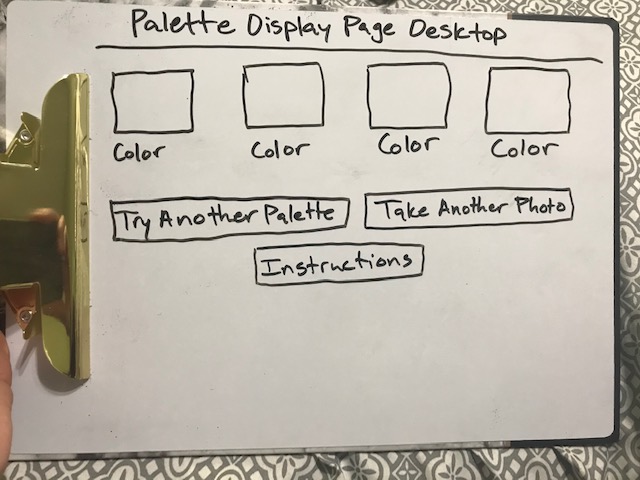 Palette Display Page Desktop
Color Color Color Color
Try Another Palette Take Another Photo
Instructions